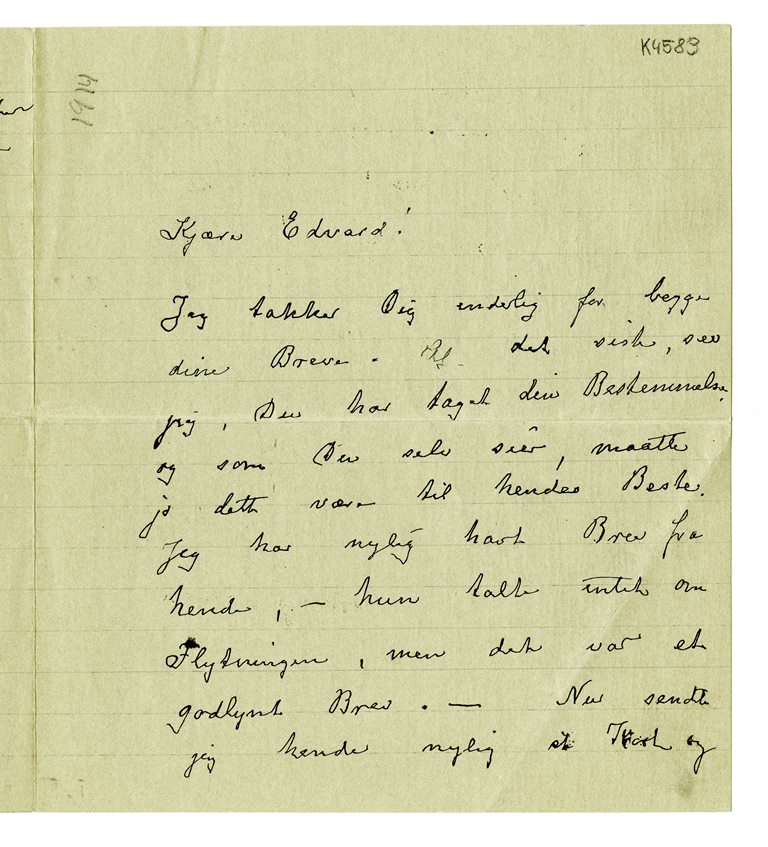 K4589
1914
Kjære Edvard!
Jeg takker Dig inderlig for begge
dine Breve. Af det siste, seer
jeg, Du har taget din Bestemmelse,
og som Du selv siér, maatte
jo dette være til hendes Beste.
Jeg har nylig havt Brev fra
hende, — hun talte intet om
Flytningen, men det var et
godlynt Brev. — Nu sendte
jeg hende nylig et Kort og